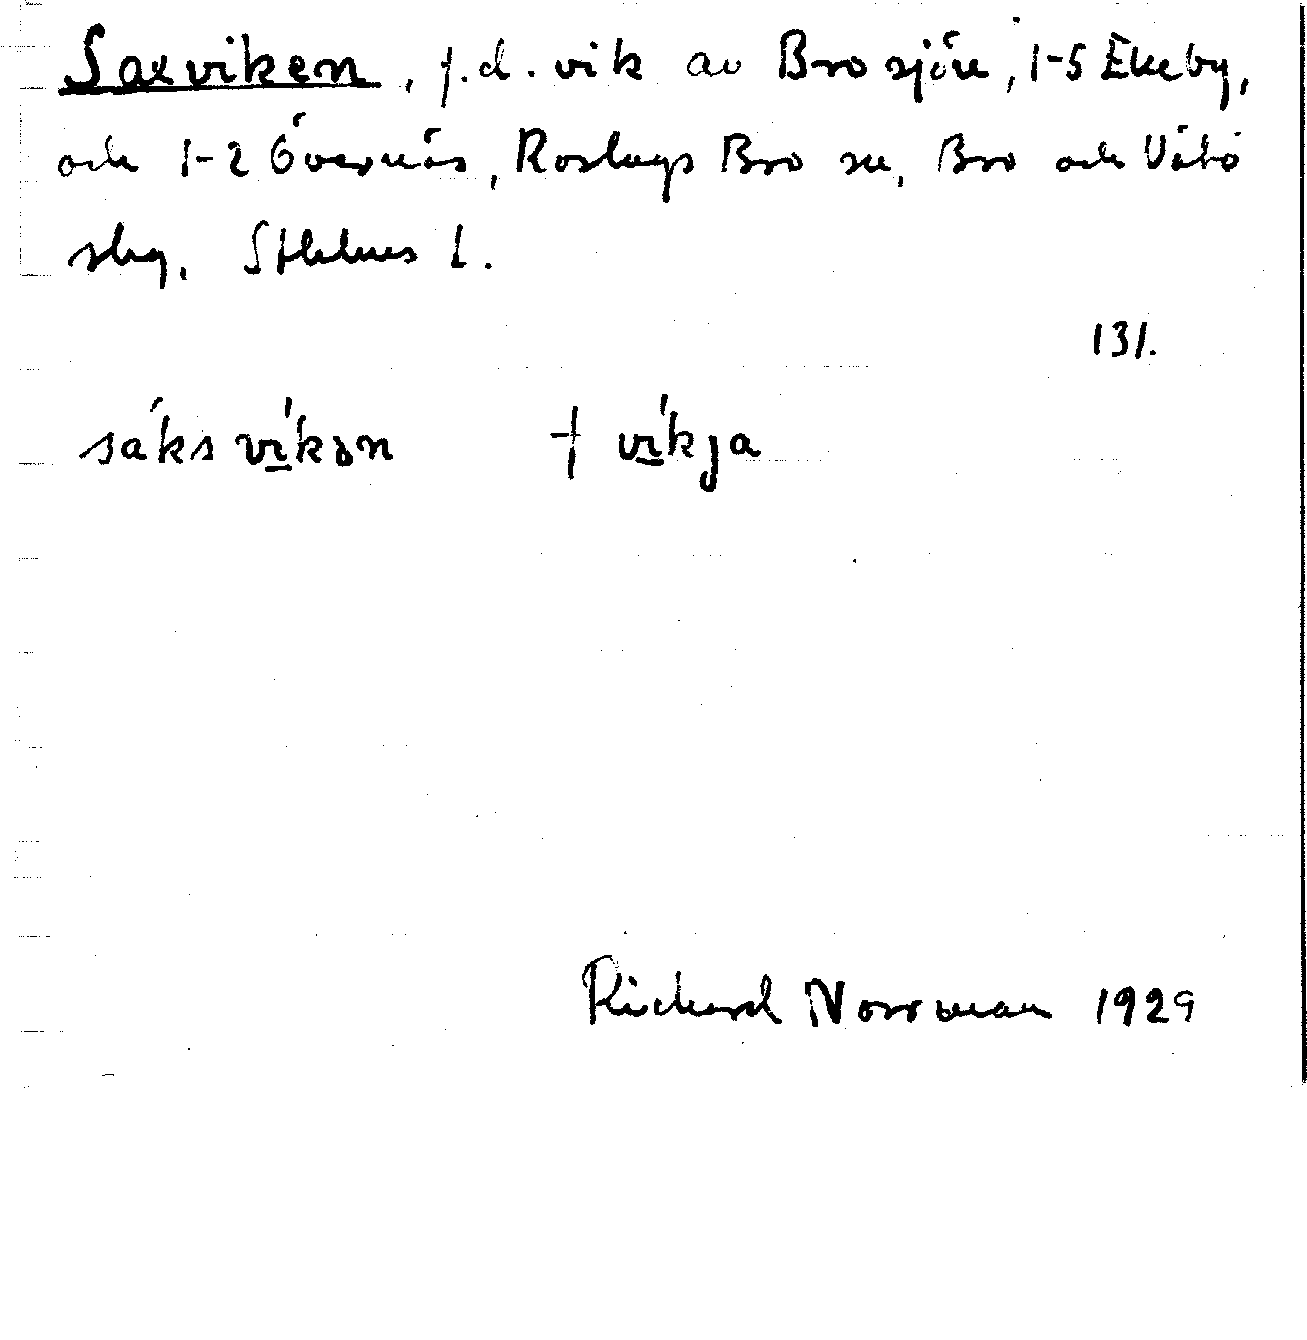 Saxviken, f.d. vik av Brosjön, 1-5 Ekeby,
och 1-2 Övernäs, Roslags Bro sn, Bro och Vätö
slg. Sthlms l.
131.
sáksvíkən † víkja
Richard Norrman 1929